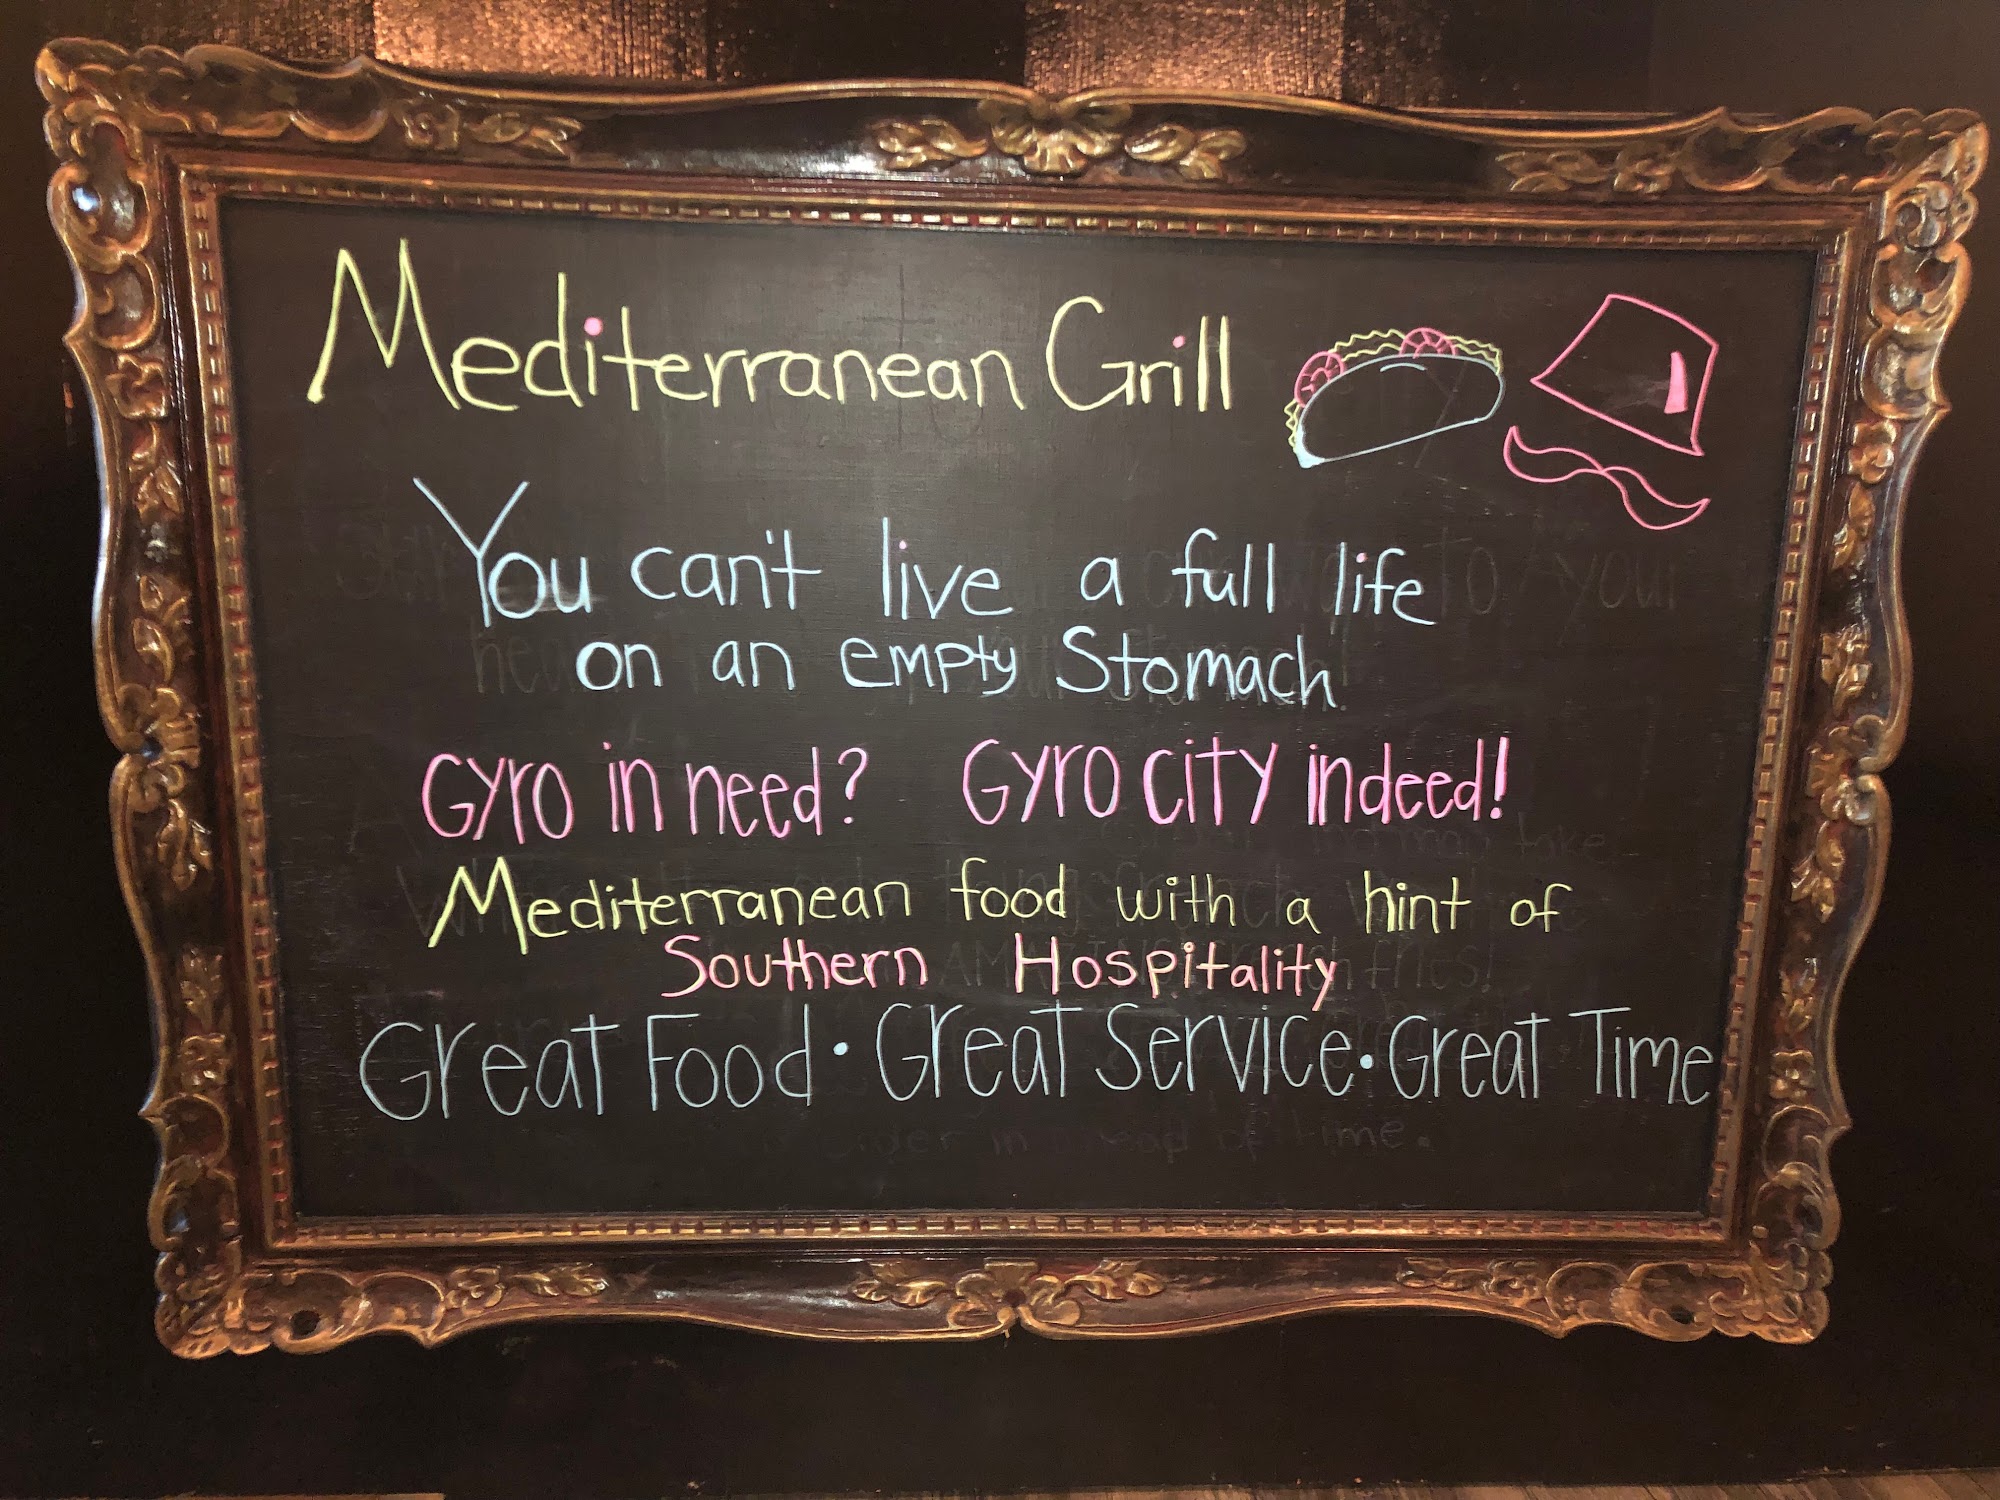 Mediterranean Grill
You can't live a full life
on an empty Stomach
Gyro in need? Gyro city indeed!
Mediterranean food with a hint of
Southern Hospitality
Great Food • Great Service • Great Time